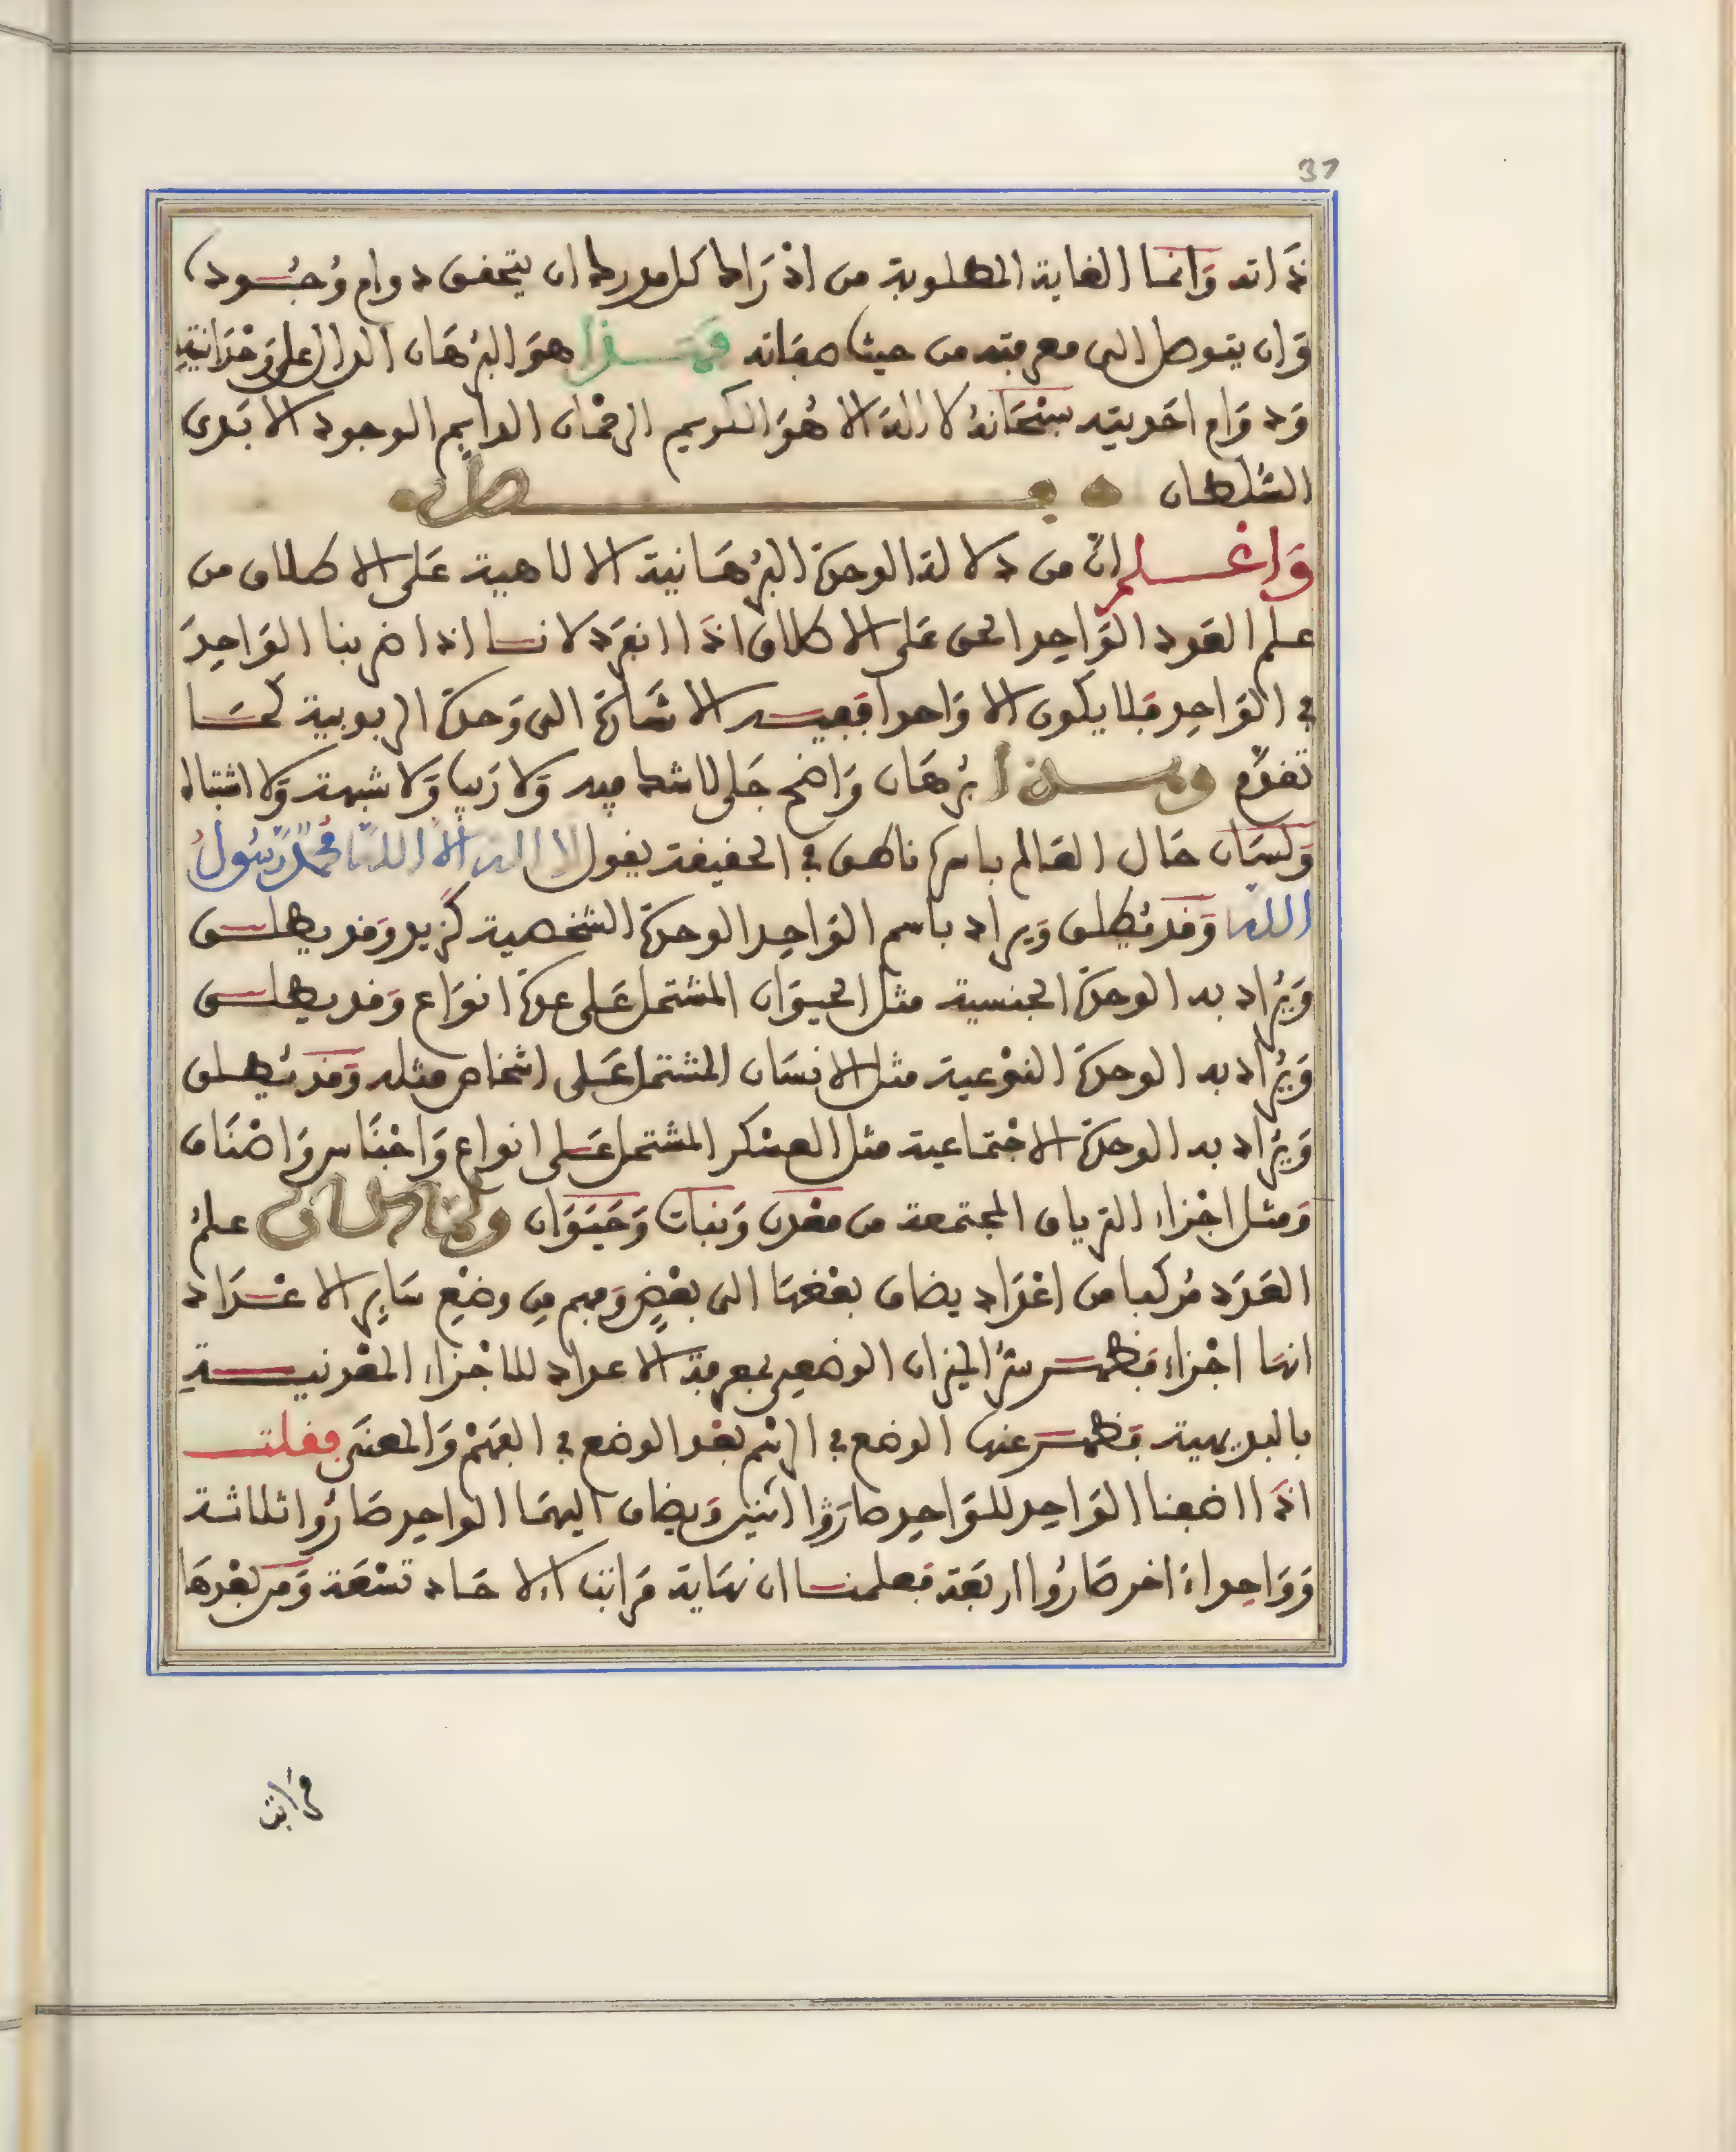 37
ذَاته وَانما الغاية المطلوبة من ادْرَاك كل مدرك ان يتحقق دوام وُجُوده
وَان يتوصل الى معرفته من حيث صفاته فهذا هوَ البُرْهَان الدال على وَحْدَانيتهِ
وَدوَام احَديته سبْحَانهُ لا الهَ الا هُوَ الكريم الرحْمان الدايم الوجود الابَدى
السُّلطان فصل
وَاعْلم ان من دلالة الوحدة البُرْهَانية الالاهية عَلى الاطلاق من
علم العَدد الوَاحِد الحق عَلى الاطلاق اذَا انفرَد لانا اذا ضربنا الوَاحِدَ
في الوَاحِد فَلا يكون الا وَاحدا ففيه الاشَارة الى وَحدة الربوبية كمَا
تقدَّم وهذا بُرْهَان وَاضح جَلى لا شك فيه وَلا رَيب وَلا شبهة وَلا اشتباه
وَلسَان حَال العَالم باسره ناطق في الحقيقة يقول لا اله الا الله محمدٌ رَسُولُ
الله وَقَد يُطلق وَيراد باسم الوَاحِد الوحدة الشخصية كزيد وَقد يطلق
وَيُرَاد به الوحدة الجنسية مثل الحيوَان المشتمل عَلى عدة انوَاع وَقد يطلق
وَيُرَاد به الوحدة النوْعية مثل الانسَان المشتمل عَلى اشخاص مثله وَقد يُطلق
وَيُرَاد به الوحدة الاجْتماعية مثل العسْكر المشتمل عَلى انواع وَاجْنَاس وَاصْنَاف
وَمثل اجْزاء الترياق المجتمعة من معْدن وَنبات وَحَيَوَان وَلما كان علمُ
العَدَد مُركبا من اعْدَاد يضاف بعْضهَا الى بعْضٍ وَفهم مِن وضْعِ سَايِر الاعْدَاد
انهَا اجْزاء فظهر سرُّ الميزان الوضعى بمعرفة الاعداد للاجْزاء المعْدنيةِ
بالبديهية فظهر عنها الوضع في الرسْم بعْد الوضع في الفهْم وَالمعنَى فقلت
اذَا اضفنا الوَاحِد للوَاحِد صارَوُا اثنين وَيضاف اليهمَا الواحِد صَارُوا ثلاثة
وَوَاحِدا اخر صَارُوا اربعَة فعلمنا ان نهَاية مَراتب الاحَاد تسْعَة وَمن بعْدهَا
مراتب